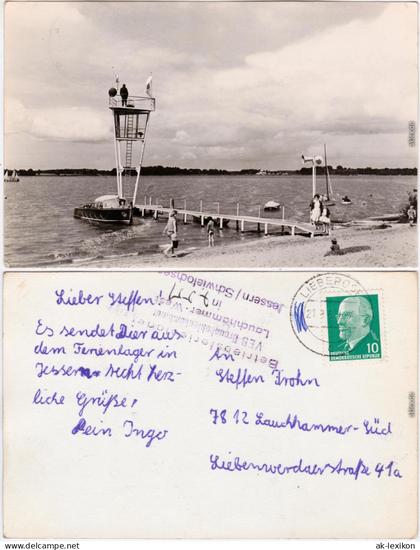 Lieber Steffen!
Es sendet Dir aus
dem Ferienlager in
Jessern recht herz-
liche Grüße!
Dein Ingo
Betriebsferienlager
VEB Braunkohlenkombinat
Lauchhammer West
in
Jessern / Schwielochsee
LIEBEROSE
10
DEUTSCHE
DEMOKRATISCHE REPUBLIK
An
Steffen Frohn
7812 Lauchhammer-Süd
Liebenwerdaer Straße 41a
www.ak-ansichtskarten.de
ak-lexikon